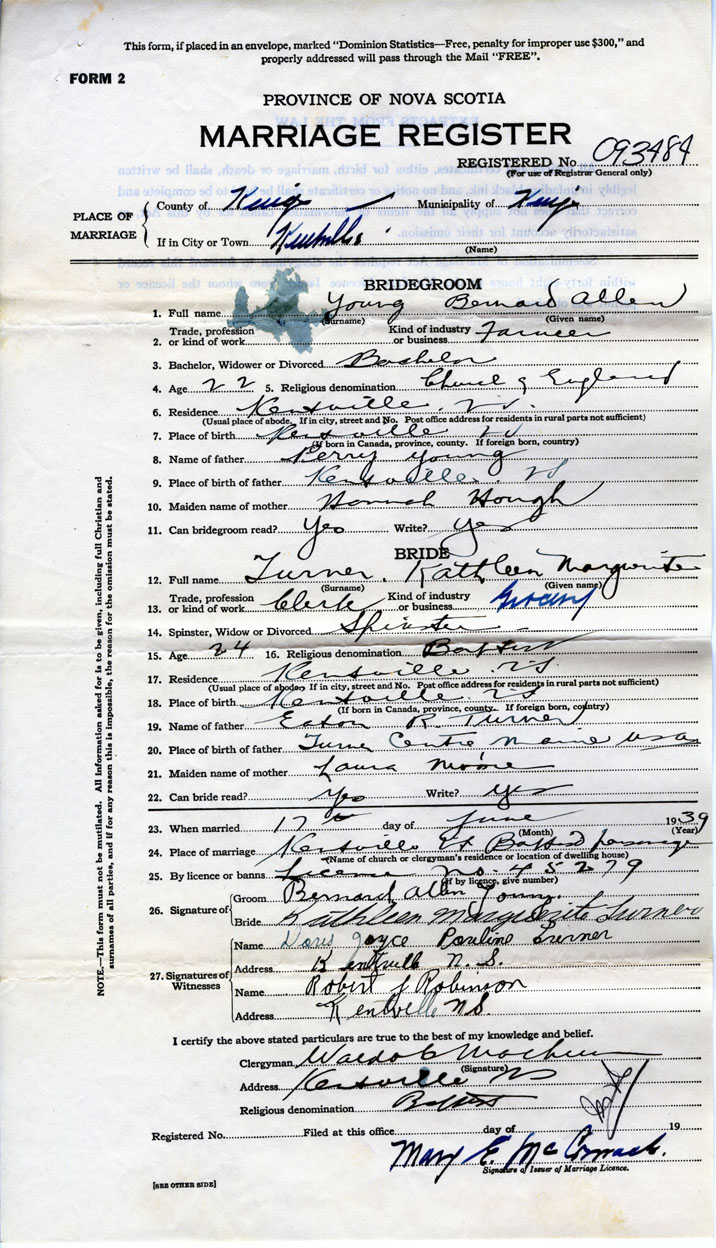 This form, if placed in an envelope, marked "Dominion Statistics—Free, penalty for improper use $300," and
properly addressed will pass through the Mail "FREE".
FORM 2
PROVINCE OF NOVA SCOTIA
MARRIAGE REGISTER
REGISTERED No. 093484
(For use of Registrar General only)
PLACE OF MARRIAGE
County of Kings Municipality of Kings
If in City or Town Kentville
(Name)
BRIDEGROOM
1. Full name Young Bernard Allen
(Surname) (Given name)
2. Trade, profession or kind of work Kind of industry or business Farmer
3. Bachelor, Widower or Divorced Bachelor
4. Age 22 5. Religious denomination Church of England
6. Residence Kentville N.S.
(Usual place of abode. If in city, street and No. Post office address for residents in rural parts not sufficient)
7. Place of birth Kentville NS
(If born in Canada, province, county. If foreign born, country)
8. Name of father Perry Young
9. Place of birth of father Kentville NS
10. Maiden name of mother Hannah Hough
11. Can bridegroom read? Yes Write? Yes
BRIDE
12. Full name Turner. Kathleen Marguerite
(Surname) (Given name)
13. Trade, profession or kind of work Clerk Kind of industry or business Grocery
14. Spinster, Widow or Divorced Spinster
15. Age 24 16. Religious denomination Baptist
17. Residence Kentville NS
(Usual place of abode. If in city, street and No. Post office address for residents in rural parts not sufficient)
18. Place of birth Kentville NS
(If born in Canada, province, county. If foreign born, country)
19. Name of father Eaton R Turner
20. Place of birth of father Turner Centre Maine USA
21. Maiden name of mother Laura Moore
22. Can bride read? Yes Write? Yes
23. When married 17th day of June 1939
(Month) (Year)
24. Place of marriage Kentville Baptist parsonage
(Name of church or clergyman's residence or location of dwelling house)
25. By licence or banns License no. 45279
(If by licence, give number)
26. Signature of
Groom Bernard Allen Young.
Bride Kathleen Marguerite Turner
27. Signatures of Witnesses
Name Doris Joyce Pauline Turner
Address Kentville N.S.
Name Robert J Robinson
Address Kentville NS.
I certify the above stated particulars are true to the best of my knowledge and belief.
Clergyman Waldo C Machum
(Signature)
Address Kentville NS
Religious denomination Baptist
Registered No. Filed at this office day of 19
Mary E. McCormack.
Signature of Issuer of Marriage Licence.
[SEE OTHER SIDE]
NOTE.—This form must not be mutilated. All Information asked for is to be given, including full Christian and
surnames of all parties, and if for any reason this is impossible, the reason for the omission must be stated.